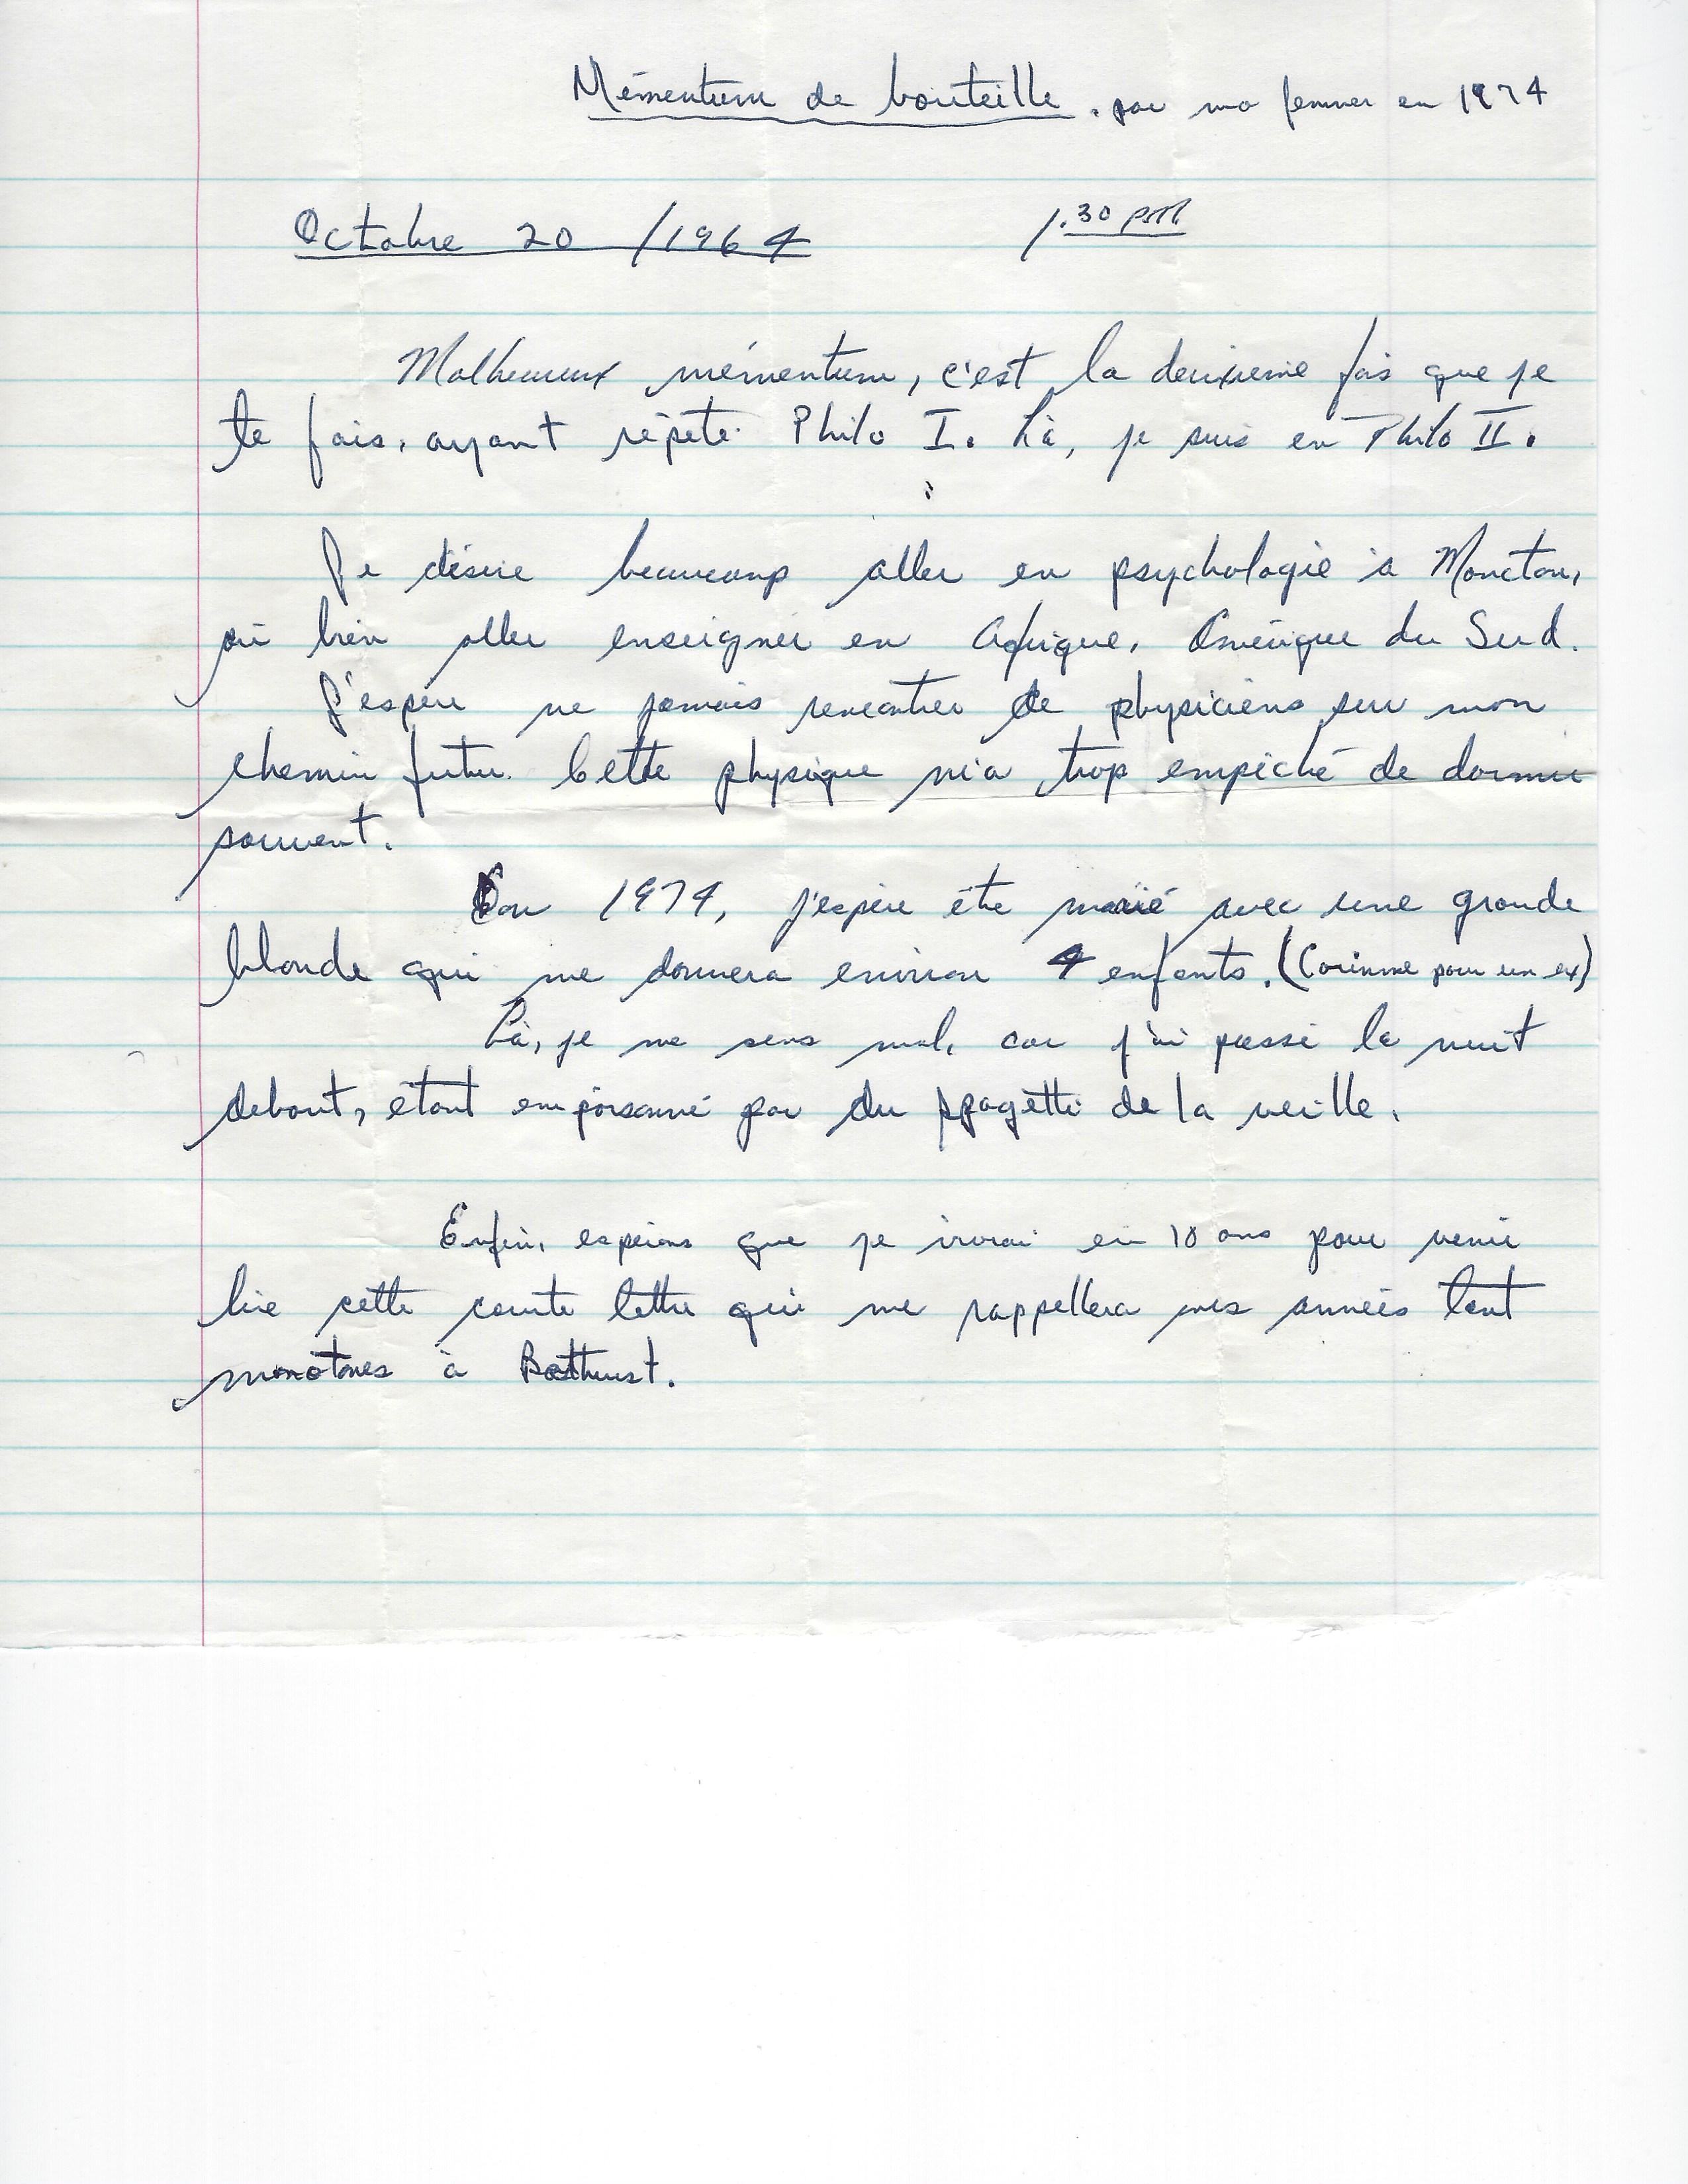 Mémentum de bouteille. par ma femme en 1974
Octobre 20 /1964 1.30 PM
Malheureux mémentum, c'est la deuxième fois que je
te fais, ayant répété Philo I. Là, je suis en Philo II.
Je désire beaucoup aller en psychologie à Moncton,
ou bien aller enseigner en Afrique, Amérique du Sud.
J'espère ne jamais rencontrer de physiciens sur mon
chemin futur. Cette physique m'a trop empêché de dormir
souvent.
1974, j'espère être marié avec une grande
blonde qui me donnera environ 4 enfants. (Corinne pour un ex)
Là, je me sens mal, car j'ai passé la nuit
debout, étant empoisonné par du spagetti de la veille.
Enfin, espérons que je vivrai en 10 ans pour venir
lire cette courte lettre qui me rappellera mes années tant
monotones à Bathurst.